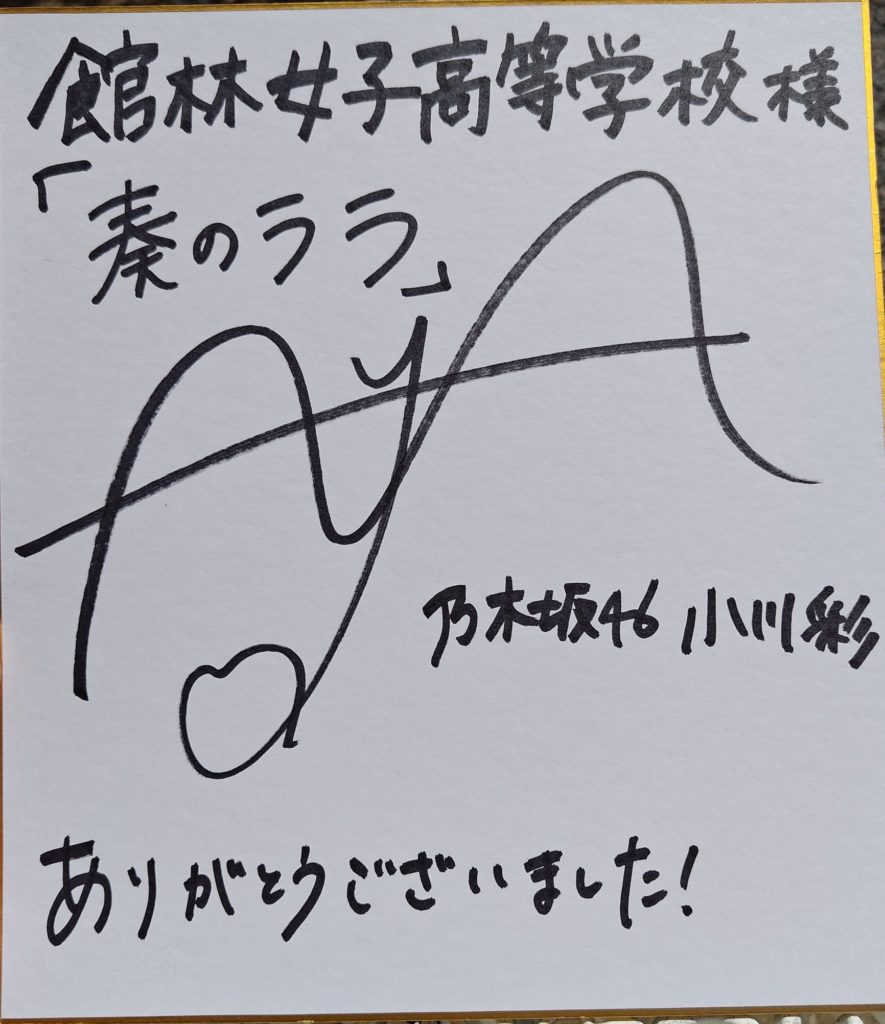 館林女子高等学校様
「奏のララ」
AyA
乃木坂46 小川彩
ありがとうございました!